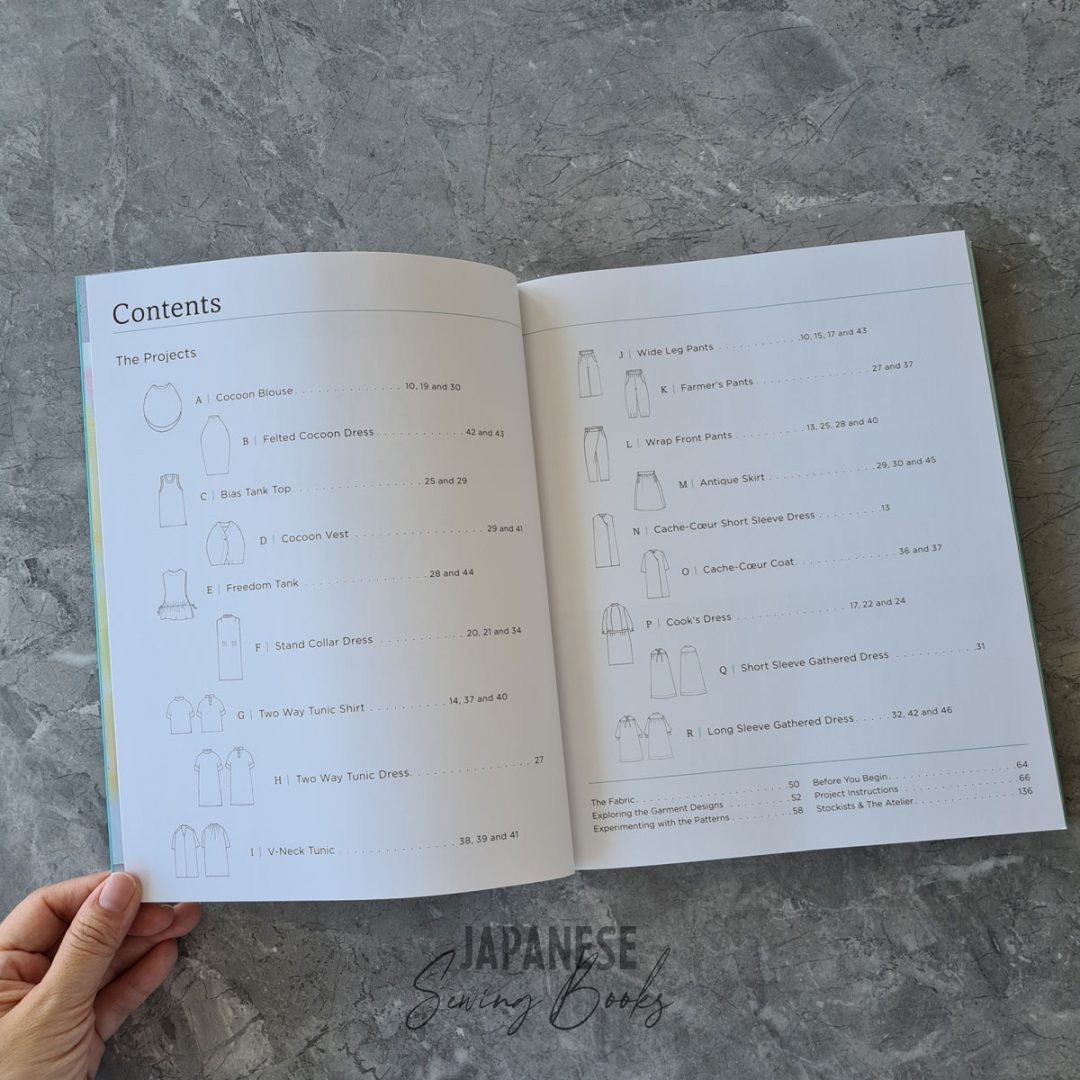 Contents
The Projects
A | Cocoon Blouse . . . . . . . . . . . . . . . . 10, 19 and 30
B | Felted Cocoon Dress . . . . . . . . . . . . . . 42 and 43
C | Bias Tank Top . . . . . . . . . . . . . . . . . . 25 and 29
D | Cocoon Vest . . . . . . . . . . . . . . . . . . 29 and 41
E | Freedom Tank . . . . . . . . . . . . . . . . . 28 and 44
F | Stand Collar Dress . . . . . . . . . . . . 20, 21 and 34
G | Two Way Tunic Shirt . . . . . . . . . . . 14, 37 and 40
H | Two Way Tunic Dress . . . . . . . . . . . . . . . . 27
I | V-Neck Tunic . . . . . . . . . . . . . . . . 38, 39 and 41
J | Wide Leg Pants . . . . . . . . . . . 10, 15, 17 and 43
K | Farmer's Pants . . . . . . . . . . . . . . . 27 and 37
L | Wrap Front Pants . . . . . . . . . 13, 25, 28 and 40
M | Antique Skirt . . . . . . . . . . . . . . 29, 30 and 45
N | Cache-Cœur Short Sleeve Dress . . . . . . . . .13
O | Cache-Cœur Coat . . . . . . . . . . . . . 36 and 37
P | Cook's Dress . . . . . . . . . . . . . . 17, 22 and 24
Q | Short Sleeve Gathered Dress . . . . . . . . . . . .31
R | Long Sleeve Gathered Dress . . . . . . 32, 42 and 46
The Fabric . . . . . . . . . . . . . . . . . . . . 50
Exploring the Garment Designs . . . . . . . . . . 52
Experimenting with the Patterns . . . . . . . . . 58
Before You Begin . . . . . . . . . . . . . . . . .64
Project Instructions . . . . . . . . . . . . . . . 66
Stockists & The Atelier . . . . . . . . . . . . . 136
JAPANESE
Sewing Books